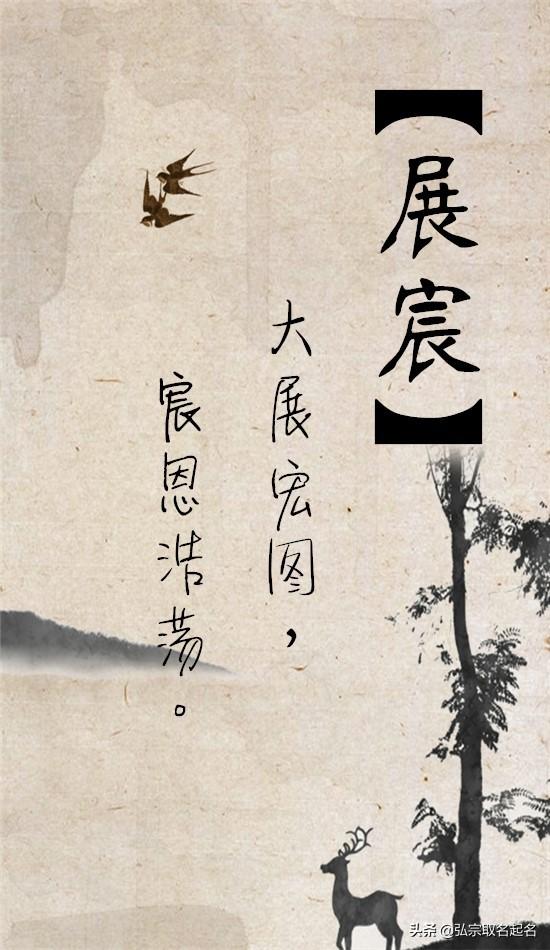 【展宸】
大展宏图，
宸恩浩荡。
头条 @弘宗取名起名